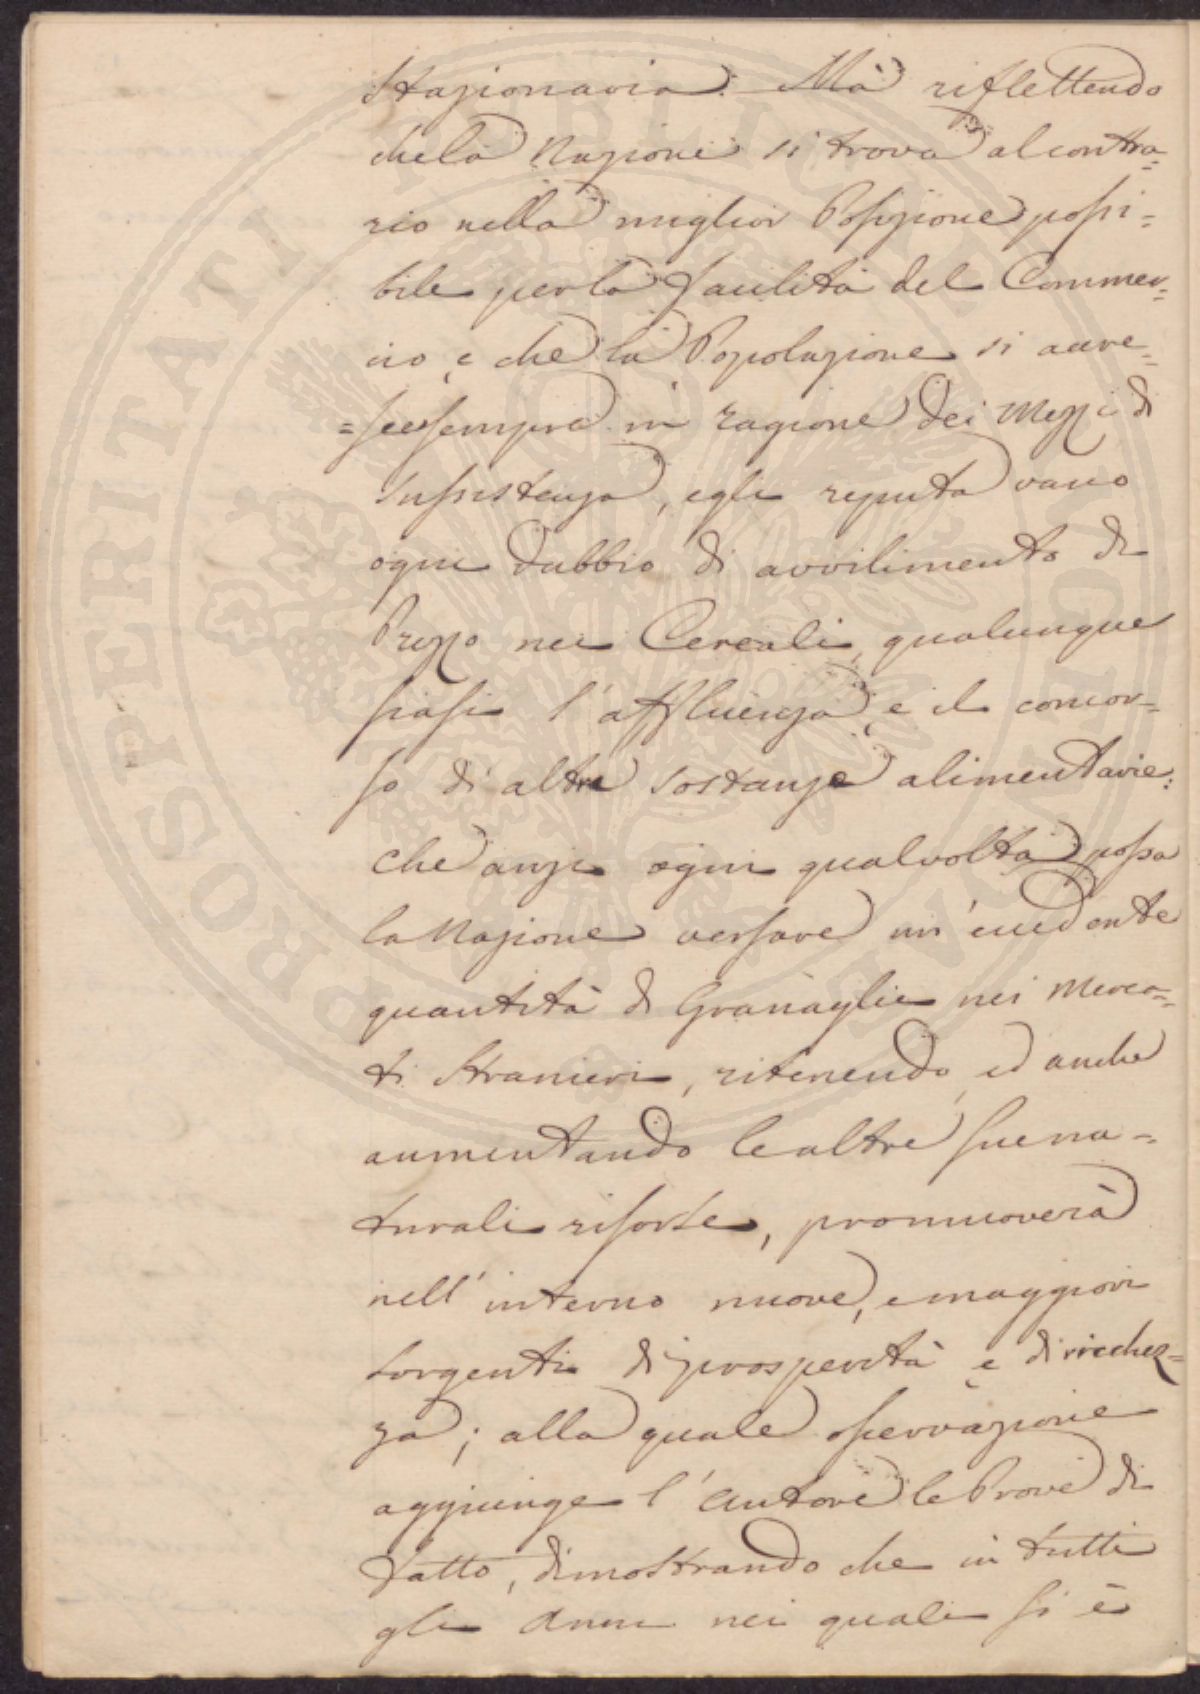 Stazionaria. Mà riflettendo
che la Nazione si trova al contra-
rio nella miglior Posizione possi-
bile per la facilità del Commer-
cio, e che la Popolazione si accre-
=sce sempre in ragione dei Mezzi di
sussistenza, egli reputa vano
ogni dubbio di avvilimento di
Prezzo nei Cereali, qualunque
siasi l'affluenza, e il concor-
so di altre sostanze alimentarie:
che anzi ogni qualvolta possa
la Nazione versare un'eccedente
quantità di Granaglie nei Merca-
ti Stranieri, ritenendo, ed anche
aumentando le altre sue na-
turali risorse, promuoverà
nell'interno nuove, e maggiori
sorgenti di prosperità e di ricchez-
za; alla quale osservazione
aggiunge l'Autore le Prove di
fatto, dimostrando che in tutti
gli Anni nei quali si è
PROSPERITATI PUBLICAE AUGENDAE